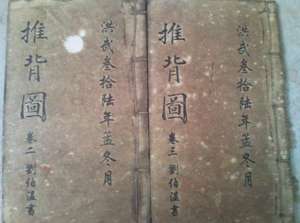 洪武叁拾陸年孟冬月
推背圖
卷三 劉伯溫書
洪武叁拾陸年孟冬月
推背圖
卷二 劉伯溫書